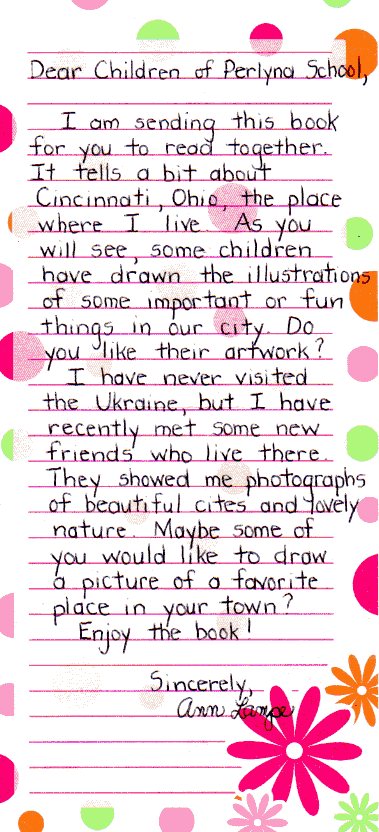 Dear Children of Perlyna School,
I am sending this book
for you to read together.
It tells a bit about
Cincinnati, Ohio, the place
where I live. As you
will see, some children
have drawn the illustrations
of some important or fun
things in our city. Do
you like their artwork?
I have never visited
the Ukraine, but I have
recently met some new
friends who live there.
They showed me photographs
of beautiful cites and lovely
nature. Maybe some of
you would like to draw
a picture of a favorite
place in your town?
Enjoy the book!
Sincerely,
Ann Lampe